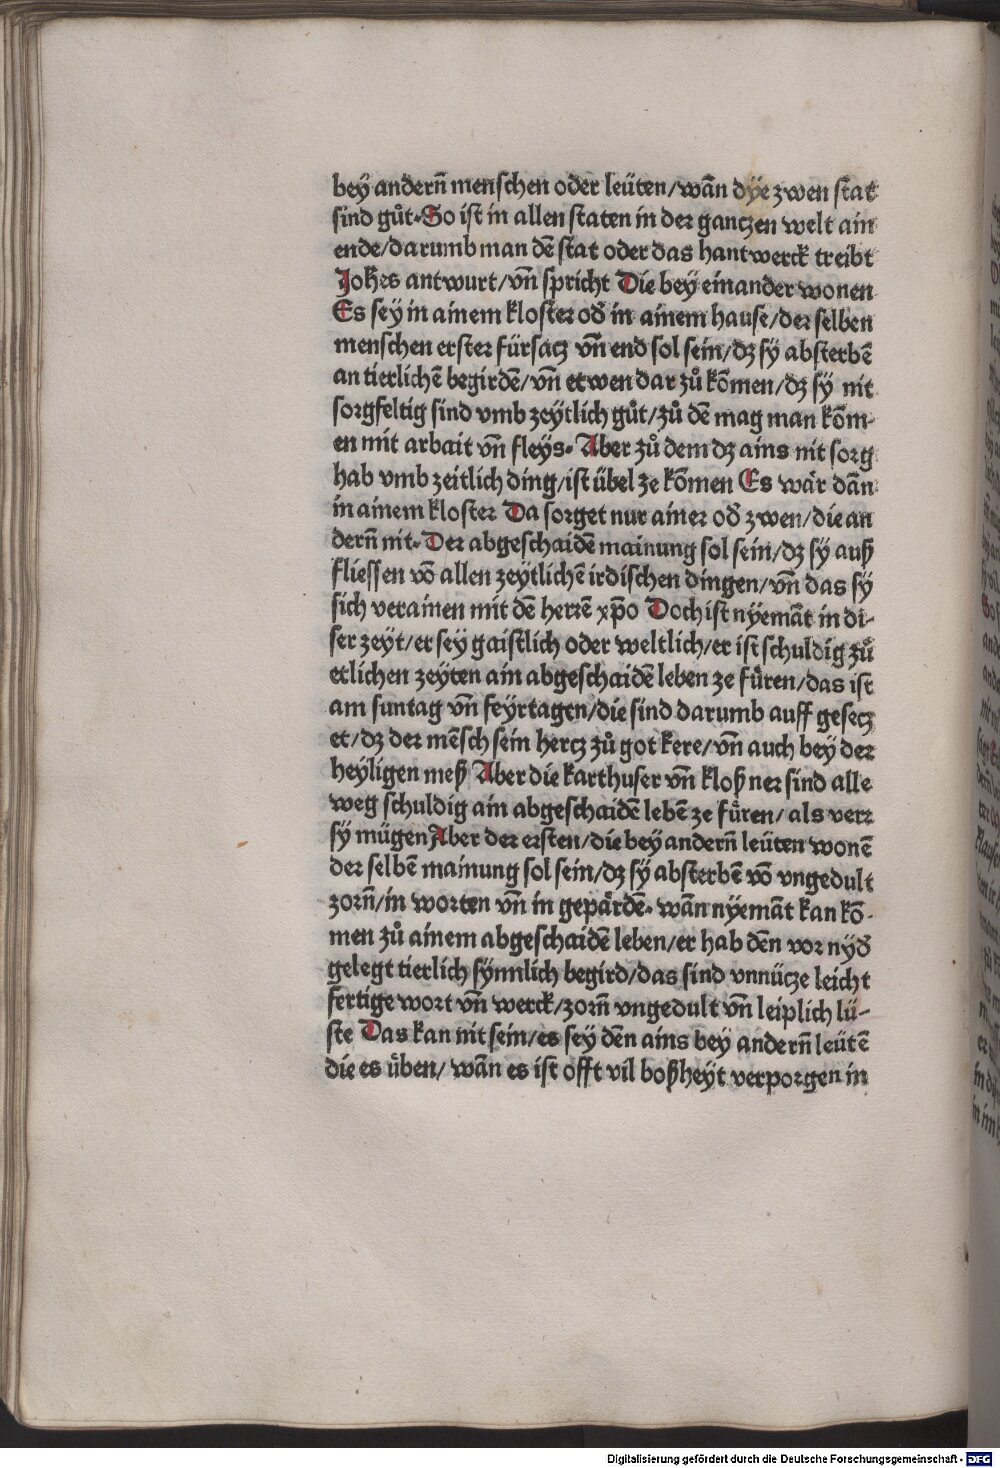 bey andern̄ menschen oder leüten/wān dÿe zwen stat
sind gůt. So ist in allen staten in der ganczen welt ain
ende/darumb man dē stat oder das hantwerck treibt
Johes antwurt/vn̄ spricht Die bey einander wonen
Es sey in ainem kloster od̄ in ainem hause/der selben
menschen erster fürsacz vn̄ end sol sein/dz sÿ absterbē
an tierlichē begirdē/vn̄ etwen dar zů kōmen/dz sÿ nit
sorgfeltig sind vmb zeÿtlich gůt/zů dē mag man kōm-
en mit arbait vn̄ fleÿs. Aber zů dem dz ains nit sorg
hab vmb zeitlich ding/ist übel ze kōmen Es wår dān
in ainem kloster Da sorget nur ainer od̄ zwen/die an
dern̄ nit. Der abgeschaidē mainung sol sein/dz sÿ auß
fliessen vō allen zeÿtlichē irdischen dingen/vn̄ das sÿ
sich verainen mit dē herrē xp̄o Doch ist nÿemāt in di-
ser zeÿt/er sey gaistlich oder weltlich/er ist schuldig zů
etlichen zeÿten ain abgeschaidē leben ze fůren/das ist
am suntag vn̄ feÿrtagen/die sind darumb auff gesecz
et/dz der mēsch sein hercz zů got kere/vn̄ auch bey der
heÿligen meß Aber die karthuser vn̄ kloßner sind alle
weg schuldig ain abgeschaidē lebē ze fůren/als verr
sÿ mügen Aber der ersten/die bey andern̄ leüten wonē
der selbē mainung sol sein/dz sÿ absterbē vō vngedult
zorn̄/in worten vn̄ in gepärdē. wān nÿemāt kan kō-
men zů ainem abgeschaidē leben/er hab dēn vor nÿd̄
gelegt tierlich sÿnnlich begird/das sind vnnücze leicht
fertige wort vn̄ werck/zorn̄ vngedult vn̄ leiplich lü-
ste Das kan nit sein/es sey dēn ains bey andern̄ leütē
die es ůben/wān es ist offt vil boßheÿt verporgen in
Digitalisierung gefördert durch die Deutsche Forschungsgemeinschaft - DFG